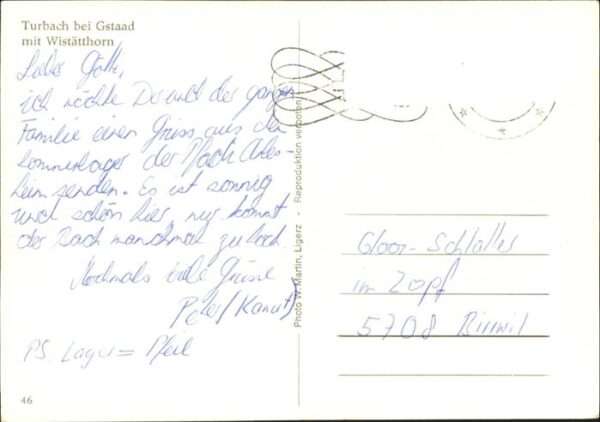 Turbach bei Gstaad
mit Wistätthorn
Lieber Götti,
ich möchte Dir und der ganzen
Familie einen Gruss aus dem
Sommerlager der
heim senden. Es ist sonnig
und schön hier, nur kommt
der Bach manchmal zu hoch
Nochmals viele Grüsse
Peter
PS. Lager = Pfeil
46
Photo W. Martin, Ligerz - Reproduktion verboten
Gloor-Schlatter
im Zopf
5708 Birrwil